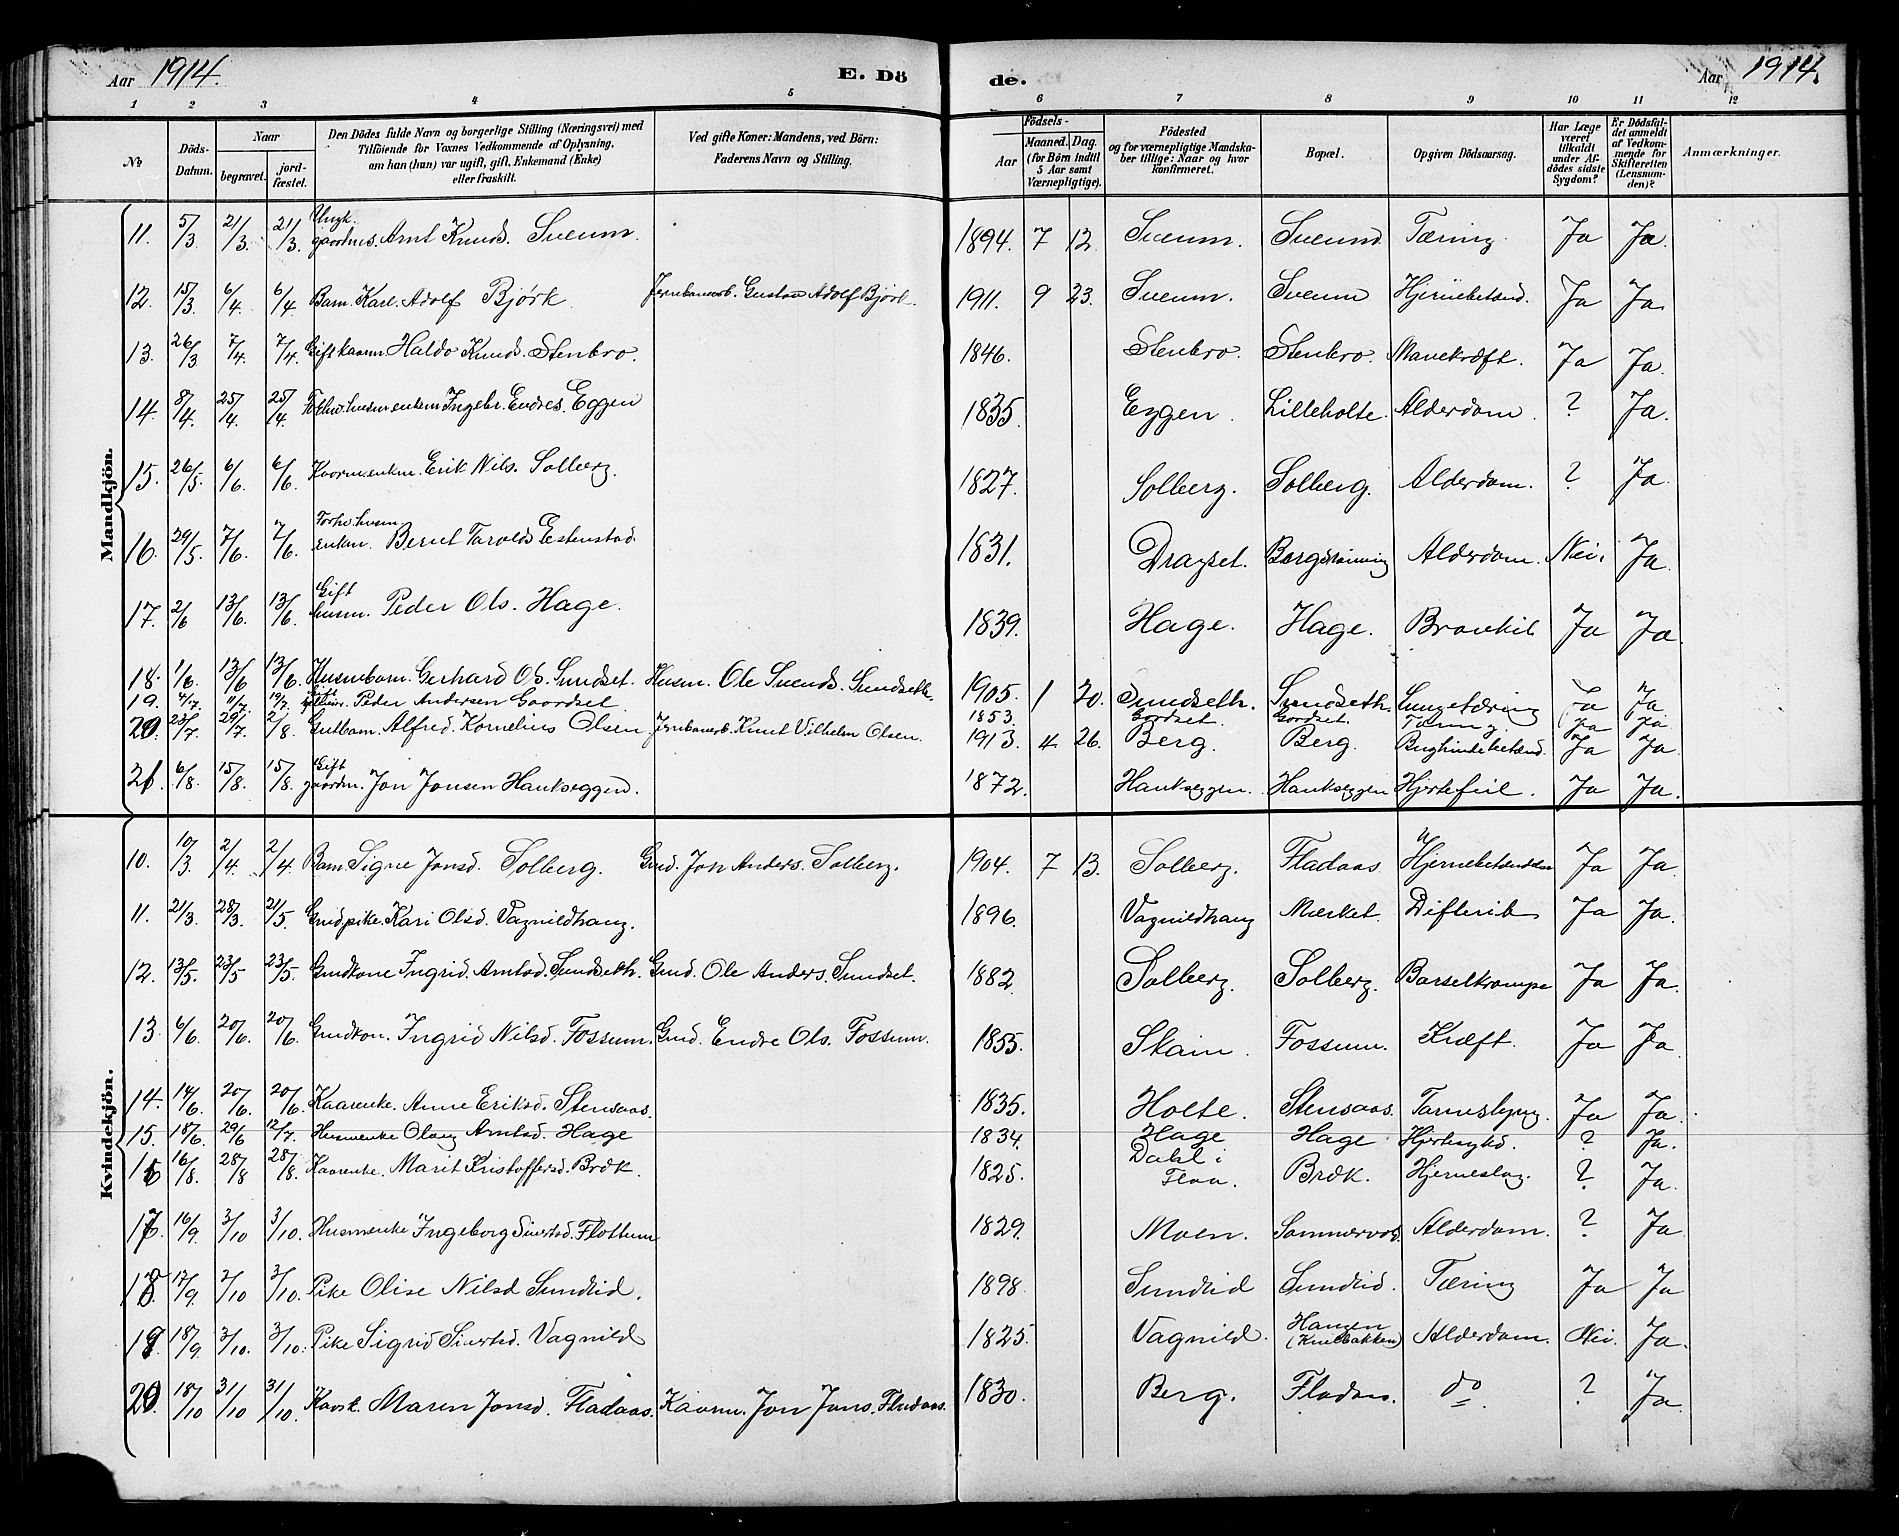 Aar 1914. E. Dö de. Aar 1914.
1 2 3 4 5 6 7 8 9 10 11 12
No Döds-Datum. Naar begravet. jordfæstet. Den Dödes fulde Navn og borgerlige Stilling (Næringsvei) med Tilföiende for Voxnes Vedkommende af Oplysning, om han (hun) var ugift, gift, Enkemand (Enke) eller fraskilt. Ved gifte Koner: Mandens, ved Börn: Faderens Navn og Stilling. Födsels- Aar Maaned. Dag. (for Börn indtil 5 Aar samt Værnepligtige). Födested og for værnepligtige Mandskaber tillige: Naar og hvor konfirmeret. Bopæl. Opgiven Dödsaarsag. Har Læge været tilkaldt under Afdödes sidste Sygdom? Er Dödsfaldet anmeldt af Vedkommende for Skifteretten (Lensmanden)? Anmærkninger.
Mandkjön.
11. 5/3 21/3 21/3. Ungk. gaardms. Arnt Knuds. Sveum. 1894. 7 12. Sveum. Sveum Tæring Ja Ja.
12. 15/3 6/4 6/4 Barn. Karl Adolf Bjørk Jernbanearb. Gustav Adolf Bjørk 1911. 9 23. Sveum. Sveum Hjernebetænd. Ja Ja.
13. 26/3 7/4. 7/4. Gift kaarm Haldo Knuds. Stenbro. 1846. Stenbro. Stenbro. Mavekræft. Ja Ja.
14. 8/4 25/4. 25/4. Forhv. husm enkem Ingebr. Endres. Eggen 1835. Eggen. Lilleholte. Alderdom. ? Ja.
15. 26/5. 6/6. 6/6. Kaarm. enkm. Erik Nils. Solberg. 1827. Solberg. Solberg. Alderdom. ? Ja
16. 29/5. 7/6. 7/6. Forhv. husm enkm. Bernt Tarolds Estenstad. 1831. Drayset. Bergsrønning Alderdom. Nei. Ja.
17. 2/6 13/6. 13/6. Gift husm. Peder Ols. Hage. 1839. Hage. Hage. Bronkit Ja Ja.
18. 1/6. 13/6 13/6. Husmbarn. Gerhard Ols. Sundset. Husm. Ole Svends. Sundseth. 1905. 1 20. Sundseth. Sundseth. Lungetæring Ja Ja
19. 4/7. 11/7. 19/7. Gift Peder Andersen Gaardset. 1853. Gordset. Gordset. Tæring Ja Ja
20 23/7 29/7. 2/8. Gutbarn. Alfred Kornelius Olsen Jernbanearb. Knut Vilhelm Olsen. 1913. 4 26. Berg. Berg. Bughindebetænd. Ja Ja.
21. 6/8. 15/8. 15/8. Gift gaardm. Jon Jonsen Haukseggen. 1872. Haukseggen. Haukseggen Hjertefeil. Ja Ja.
Kvindekjön.
10. 10/3 2/4. 2/4. Barn Signe Jonsd. Solberg. Gmd. Jon Anders. Solberg. 1904. 7 13. Solberg. Fladaas Hjernebetændelse Ja Ja.
11. 21/3. 28/3. 21/5. Gmdpike. Kari Olsd. Vagnildhaug. 1896. Vagnildhaug Mærket. Difterit Ja Ja.
12. 13/5. 23/5 23/5. Gmdkone Ingrid Arntsd. Sundseth. Gmd. Ole Anders. Sundset. 1882. Solberg. Solberg. Barselkrampe Ja Ja.
13. 6/6. 20/6. 20/6. Gmdkon. Ingrid Nilsd. Fossum. Gmd. Endre Ols. Fossum. 1855. Skain. Fossum. Kræft. Ja Ja
14. 14/6. 20/6. 20/6. Kaarenke. Anne Eriksd. Stensaas. 1835. Holte. Stensaas. Ja Ja.
15. 18/6. 29/6 12/7. Husmenke Olaug Arntsd. Hage 1834. Hage Hage Hjertesykd. ? Ja.
16 16/8. 28/8 28/8. Kaarenke. Marit Kristoffersd. Bræk. 1825. Dahl i Flaa. Bræk. Hjerneslag. ? Ja.
17. 16/9. 3/10 3/10. Husmenke Ingeborg Siwertsd. Flottum 1829. Moen. Sommervold. Alderdom. ? Ja
18. 17/9. 3/10 3/10. Pike Olise Nilsd Sundlid. 1898. Sundlid Sundlid. Tæring Ja Ja
19. 18/9. 3/10. 3/10. Pike Sigrid Siwertsd. Vagnild 1825. Vagnild. Haugen (Knilbakken) Alderdom. Nei. Ja.
20. 18/10 31/10 31/10. Kaark. Maren Jonsd. Fladaas. Kaarm. Jon Jons. Fladaas. 1830. Berg. Fladaas. do ? Ja.